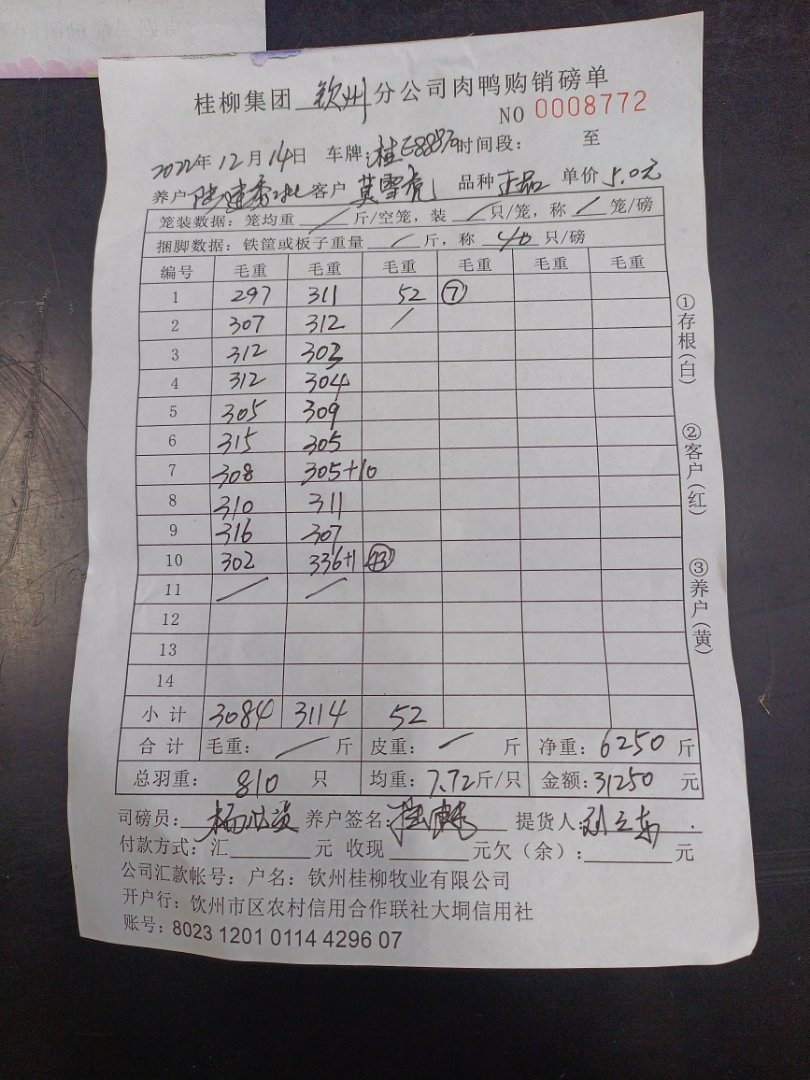 桂柳集团 钦州 分公司肉鸭购销磅单
NO 0008772
2022年12月14日 车牌:桂E88570 时间段： 至
养户 客户 莫雪虎 品种 正品 单价 5.0元
笼装数据：笼均重 / 斤/空笼，装 / 只/笼，称 / 笼/磅
捆脚数据：铁筐或板子重量 / 斤，称 40 只/磅
编号 毛重 毛重 毛重 毛重 毛重 毛重
1 297 311 52 ⑦
2 307 312 /
3 312 303
4 312 304
5 305 309
6 315 305
7 308 305+10
8 310 311
9 316 307
10 302 336+1 ㊸
11 / /
12
13
14
小计 3084 3114 52
合计 毛重： / 斤 皮重： / 斤 净重：6250 斤
总羽重： 810 只 均重：7.72斤/只 金额：31250 元
司磅员： 养户签名： 提货人：
付款方式：汇 元 收现 元欠（余）： 元
公司汇款帐号：户名：钦州桂柳牧业有限公司
开户行：钦州市区农村信用合作联社大垌信用社
账号：8023 1201 0114 4296 07
①存根(白)
②客户(红)
③养户(黄)